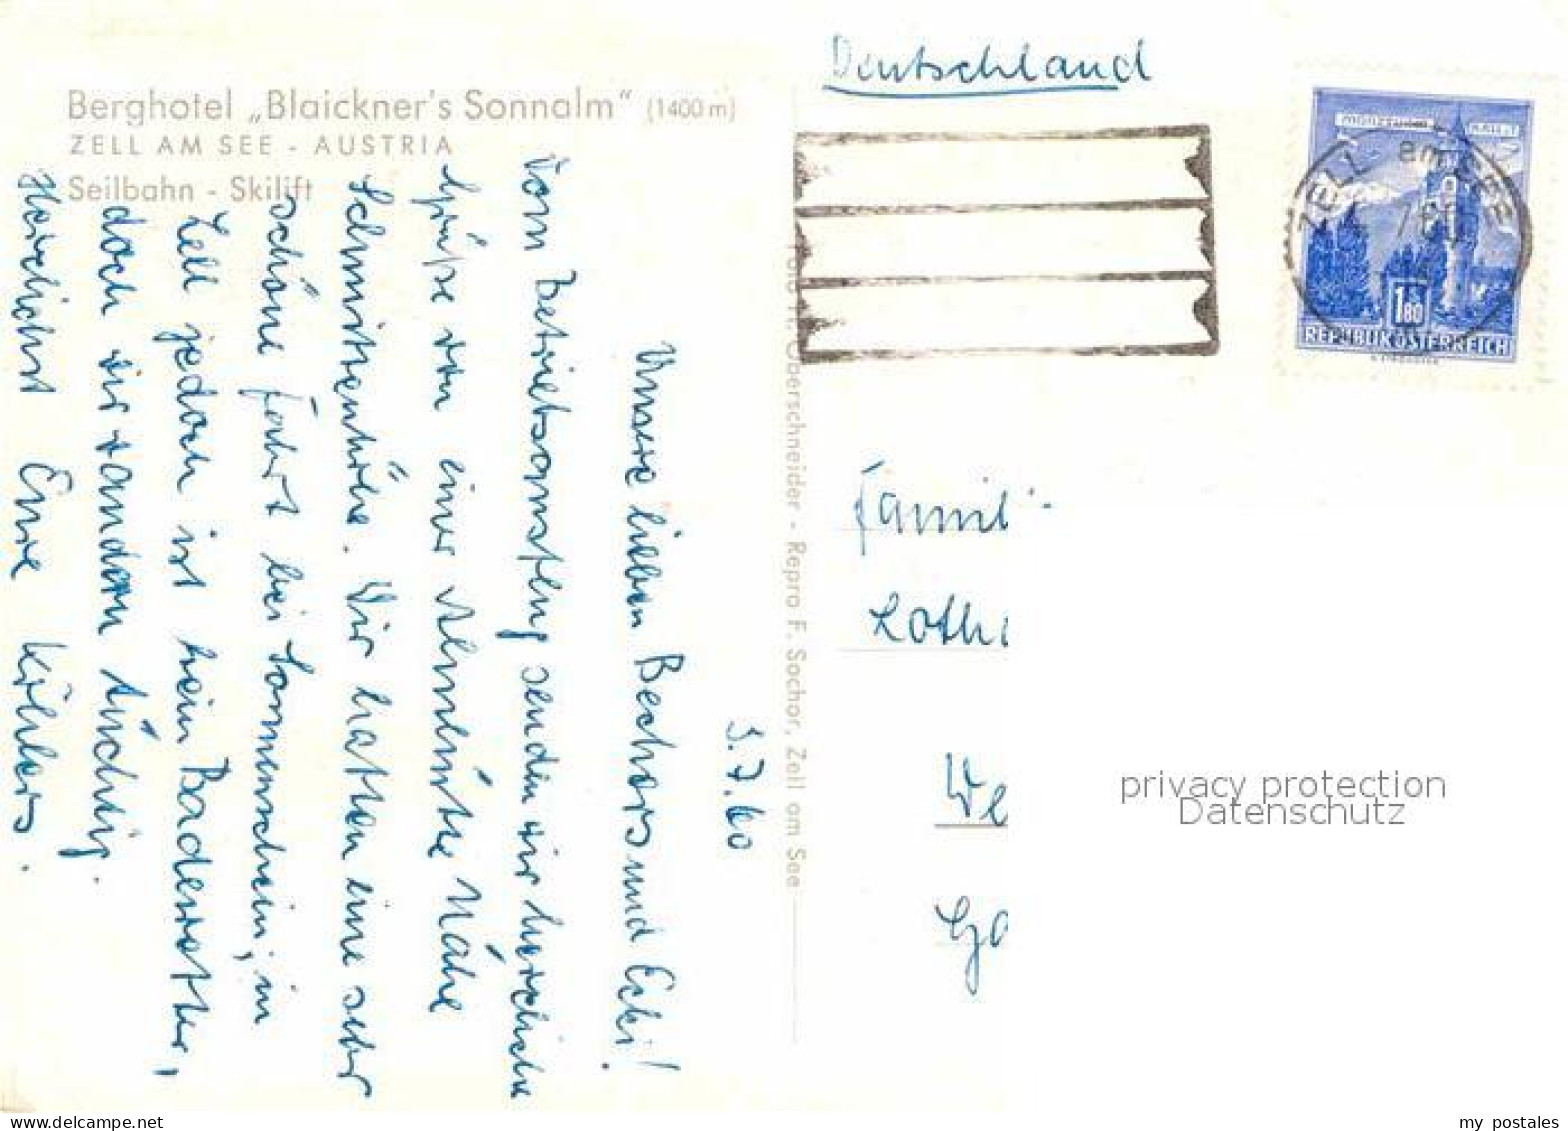 Berghotel „Blaickner's Sonnalm" (1400 m)
ZELL AM SEE - AUSTRIA
Seilbahn - Skilift
5.7.60
Unsere lieben Bechers und Ecki!
Vom Betriebsausflug senden wir herzliche
Grüße von einer Almhütte Nähe
Schmittenhöhe. Wir hatten eine sehr
schöne Fahrt bei Sonnenschein, in
Zell jedoch ist kein Badewetter,
doch wir wandern tüchtig.
Herzlichst Eure Köhlers.
Oberschneider - Repro F. Sochor, Zell am See
Deutschland
ZELL am SEE
1.80
REPUBLIK ÖSTERREICH
Famil
Loth
We
Ga
privacy protection
Datenschutz
my postales